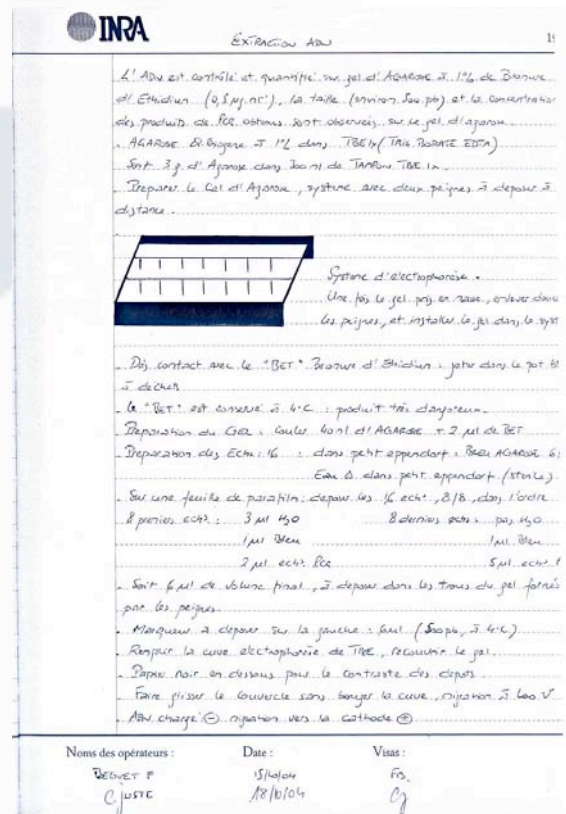 INRA
EXTRACTION ADN
L'ADN est contrôlé et quantifié sur gel d'AGAROSE à 1% de Bromure
d'Ethidium (0,5 µg.ml⁻¹). La taille (environ 500 pb) et la concentration
des produits de PCR obtenus sont observés sur le gel d'agarose.
. AGAROSE à 1% dans TBE 1x (TRIS BORATE EDTA)
Soit 3 g d'Agarose dans 300 ml de TAMPON TBE 1x.
. Préparer le Gel d'Agarose, système avec deux peignes à déposer à
distance.
Système d'électrophorèse.
Une fois le gel pris en masse, enlever
les peignes, et installer le gel dans le syst
. Dès contact avec le "BET" Bromure d'Ethidium : jeter dans le pot
à déchets
. Le "BET" est conservé à 4°C : produit très dangereux.
. Préparation du GEL : Couler 40 ml d'AGAROSE + 2 µl de BET
. Préparation des Echts : 16 : dans petit eppendorf : BLEU AGAROSE 6
Eau Δ dans petit eppendorf (stérile).
. Sur une feuille de parafilm : déposer les 16 echts, 8/8, dans l'ordre
8 premiers echts : 3 µl H₂O 8 derniers echts : pas H₂O
1 µl Bleu 1 µl Bleu
2 µl echt. PCR 5 µl echt. P
. Soit 6 µl de volume final, à déposer dans les trous du gel formés
par les peignes.
. Marqueur à déposer sur la gauche : 6 µl (500 pb, à 4°C)
. Remplir la cuve électrophorèse de TBE, recouvrir le gel.
. Papier noir en dessous pour le contraste des dépôts.
. Faire glisser le couvercle sans bouger la cuve, migration à 100 V
. ADN chargé ⊖ migration vers la cathode ⊕
Noms des opérateurs : Date : Visas :
BEGUET F 15/10/04 FB.
C JUSTE 18/10/04 Cj